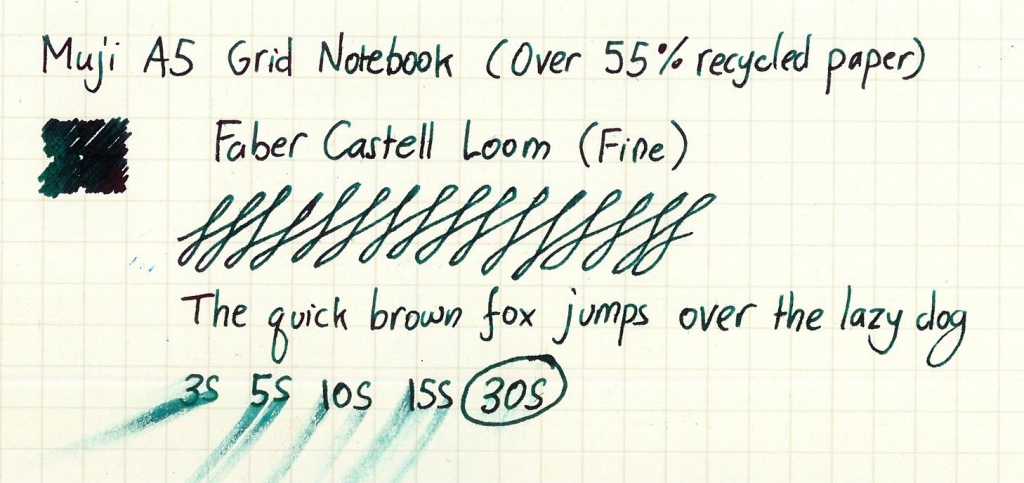 Muji A5 Grid Notebook (Over 55% recycled paper)
Faber Castell Loom (Fine)
The quick brown fox jumps over the lazy dog
3s 5s 10s 15s 30s